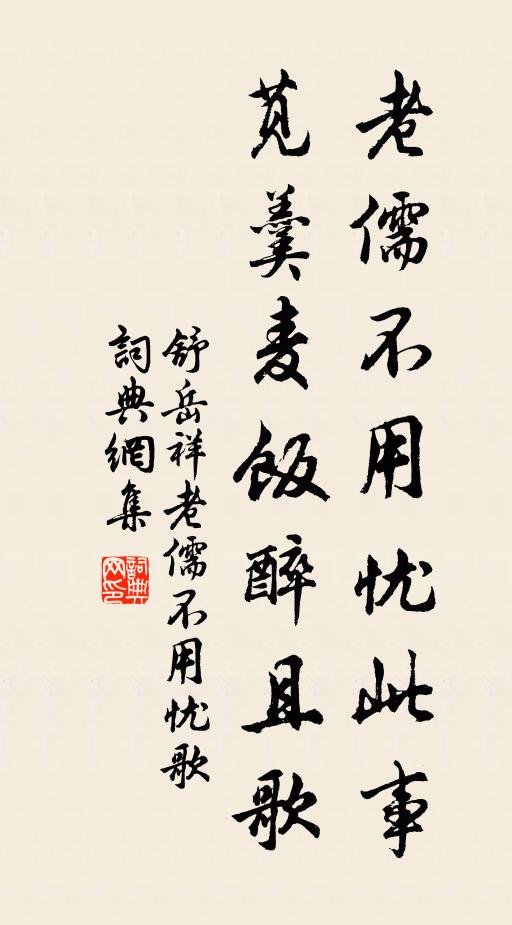 老儒不用忧此事
苋羹麦飯醉且歌
舒岳祥老儒不用忧歌
詞典網集
詞典网印